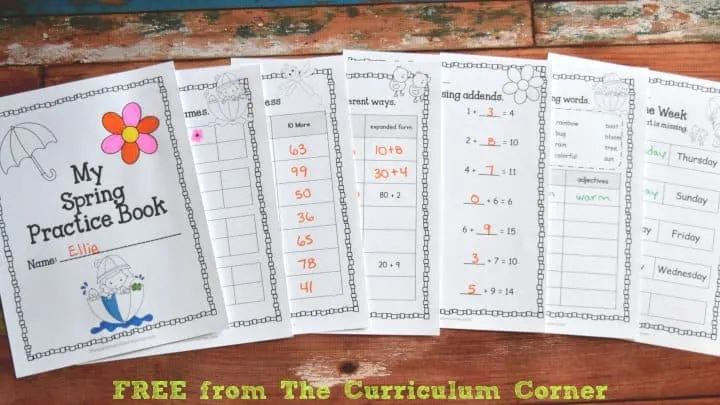 My
Spring
Practice Book
Name: Ellie
10 More
63
99
50
36
65
78
41
erent ways.
expanded form
10+8
30+4
80 + 2
20 + 9
ing addends.
1 + 3 = 4
2 + 8 = 10
4 + 7 = 11
0 + 6 = 6
6 + 9 = 15
3 + 7 = 10
5 + 9 = 14
ing words.
rainbow
bug
rain
colorful
boot
bloom
tree
sun
adjectives
warm
e Week
t is missing.
day Thursday
day Sunday
Friday
Wednesday
FREE from The Curriculum Corner